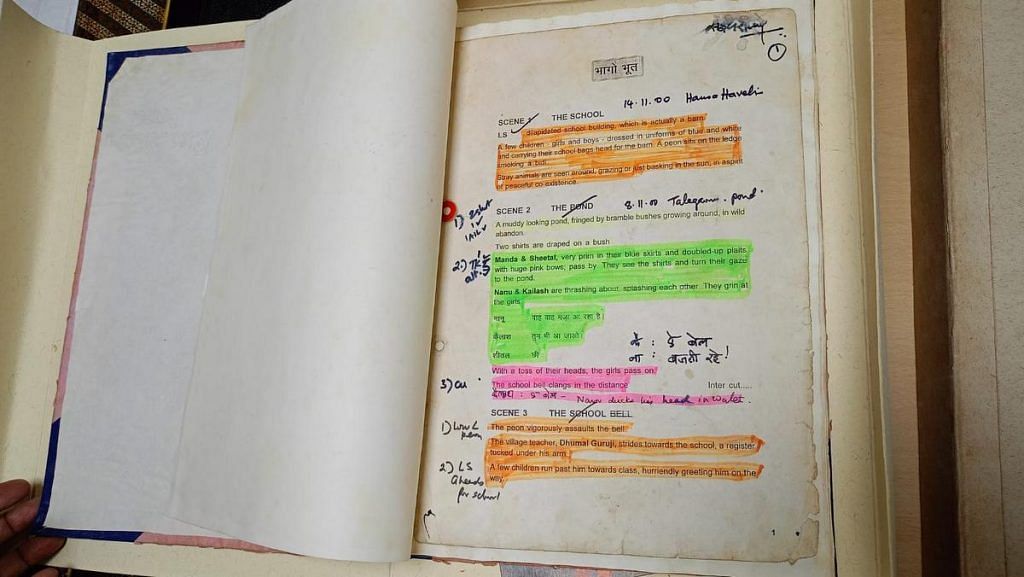 1
भागो भूत
14.11.00
SCENE 1 THE SCHOOL
LS dilapidated school building, which is actually a barn.
A few children - girls and boys - dressed in uniforms of blue and white
and carrying their school bags head for the barn. A peon sits on the ledge
smoking a bidi.
Stray animals are seen around, grazing or just basking in the sun, in aspirit
of peaceful co existence.
SCENE 2 THE POND 8.11.00 Talegaon. pond.
1)
A muddy looking pond, fringed by bramble bushes growing around, in wild
abandon.
Two shirts are draped on a bush
2)
Manda & Sheetal, very prim in their blue skirts and doubled-up plaits
with huge pink bows; pass by. They see the shirts and turn their gaze
to the pond.
Nanu & Kailash are thrashing about, splashing each other. They grin at
the girls.
नानू वाह वाह मजा आ रहा है।
कैलाश तुम भी आ जाओ।
शीतल छी
With a toss of their heads, the girls pass on
3) CU The school bell clangs in the distance Inter cut.....
ducks his head in water.
SCENE 3 THE SCHOOL BELL
1) The peon vigorously assaults the bell
The village teacher, Dhumal Guruji, strides towards the school, a register
tucked under his arm.
2) LS
A few children run past him towards class, hurriendly greeting him on the
way.
for school
1